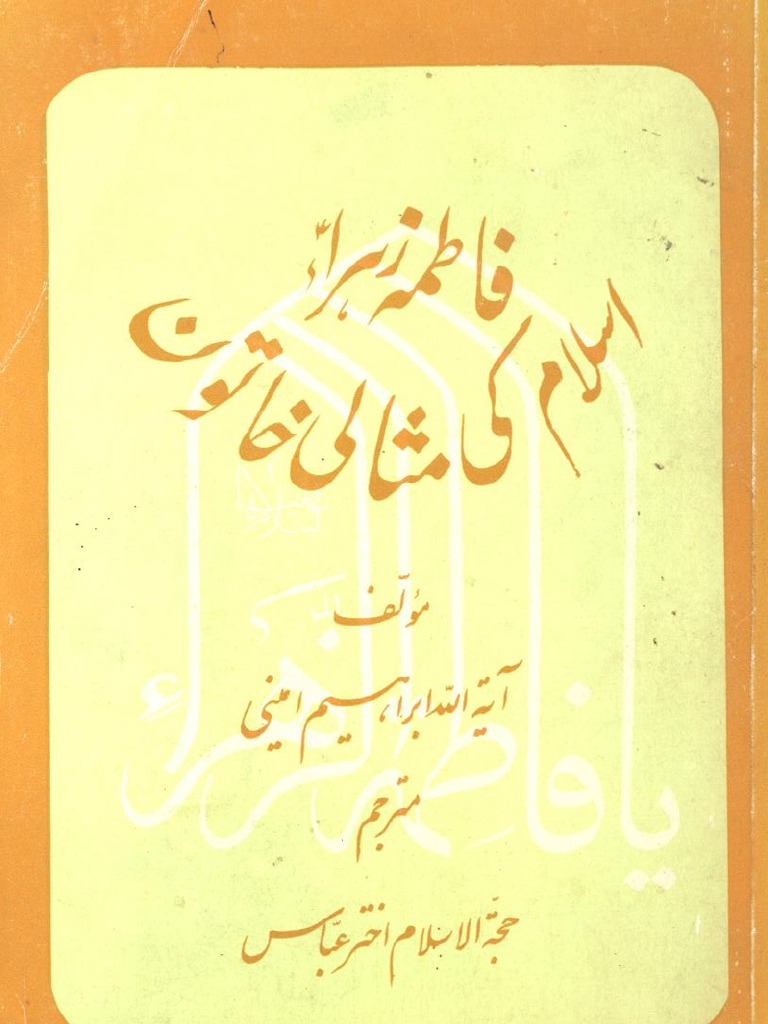 فاطمہ زہراؑ
اسلام کی مثالی خاتون
مؤلّف
آیة اللہ ابراہیم امینی
مترجم
حجّة الاسلام اختر عبّاس
یا فاطمة الزّهراء